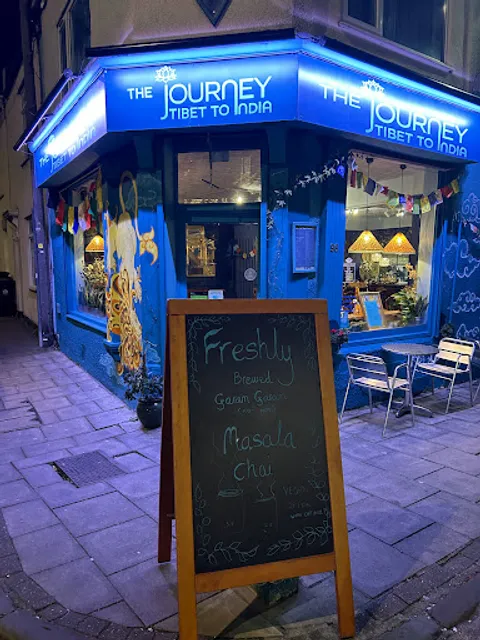 THE JOURNEY
TIBET TO INDIA
THE JOURNEY
TIBET TO INDIA
THE JOURNEY
TIBET TO INDIA
Freshly
Brewed
Garam Garam
Masala
Chai